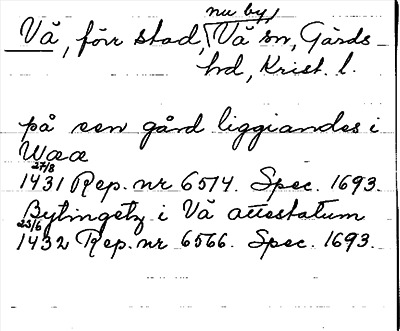 nu by
Vä, förr stad, Vä sn, Gärds
hd, Krist. l.
på een gård liggiandes i
Waæ
27/8
1431 Rep. nr 6514. Spec. 1693.
Bytingetz i Vä attestatum
25/6
1432 Rep. nr 6566. Spec. 1693.